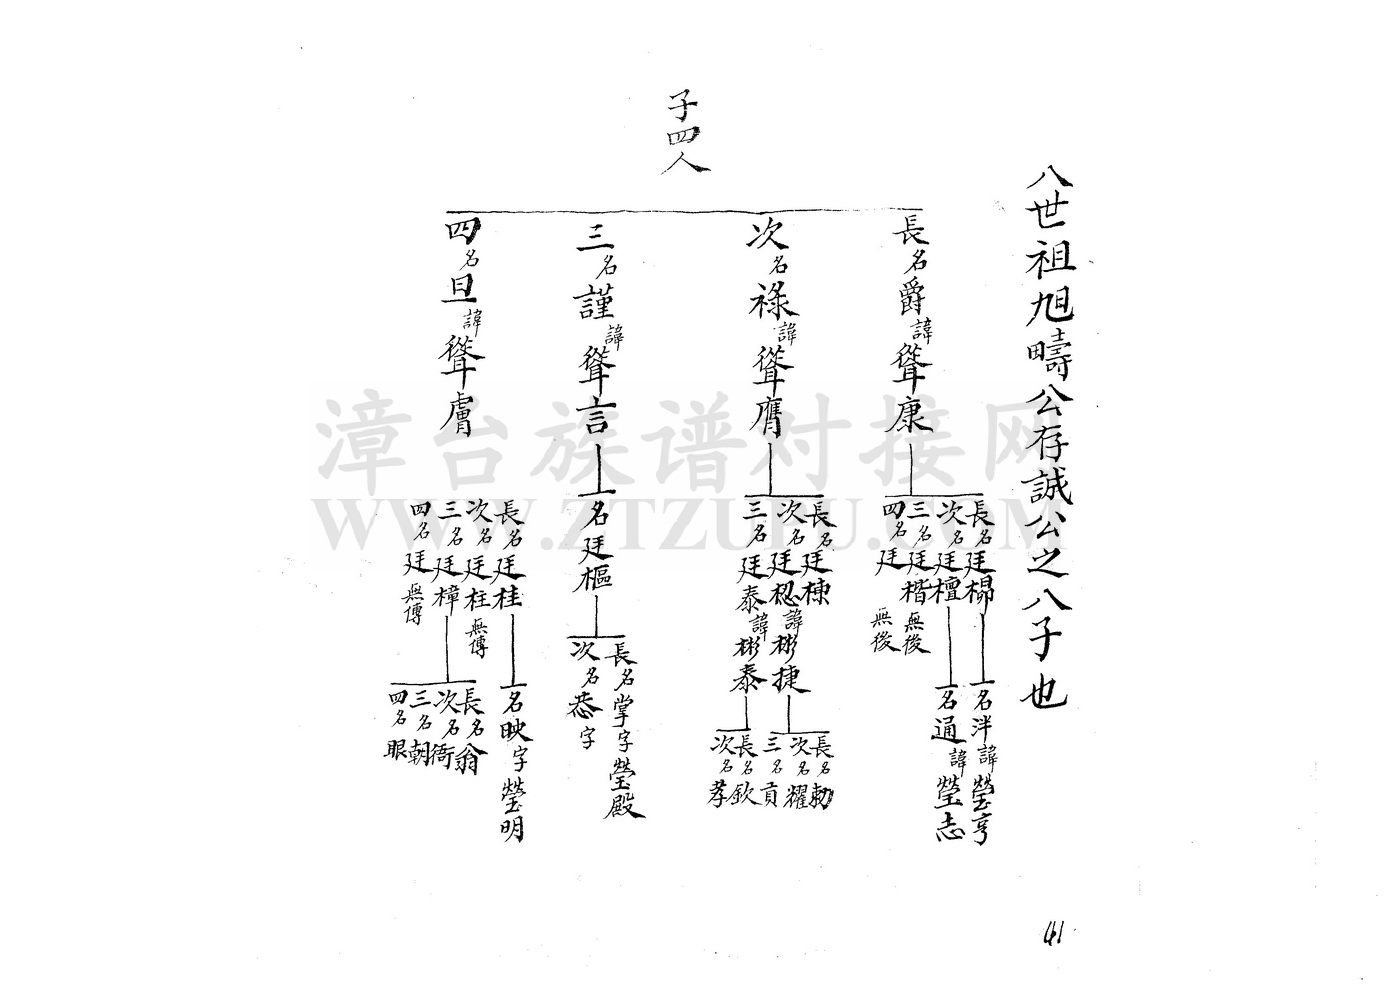 八世祖旭疇公存誠公之八子也
子四人
長名爵諱聳康
長名廷楊
名泮諱瑩亨
次名廷檀
名通諱瑩志
三名廷楷無後
四名廷無後
次名祿諱聳膺
長名廷棟
次名廷諱彬捷
長名勅
次名耀
三名貢
三名廷泰諱彬泰
長名欽
次名孝
三名謹諱聳言
名廷樞
長名掌字瑩殿
次名恭字
四名旦諱聳膚
長名廷桂
名映字瑩明
次名廷柱無傳
三名廷樟
長名翁
次名衙
三名朝
四名眼
四名廷無傳
漳台族谱对接网
WWW.ZTZUPU.COM
41